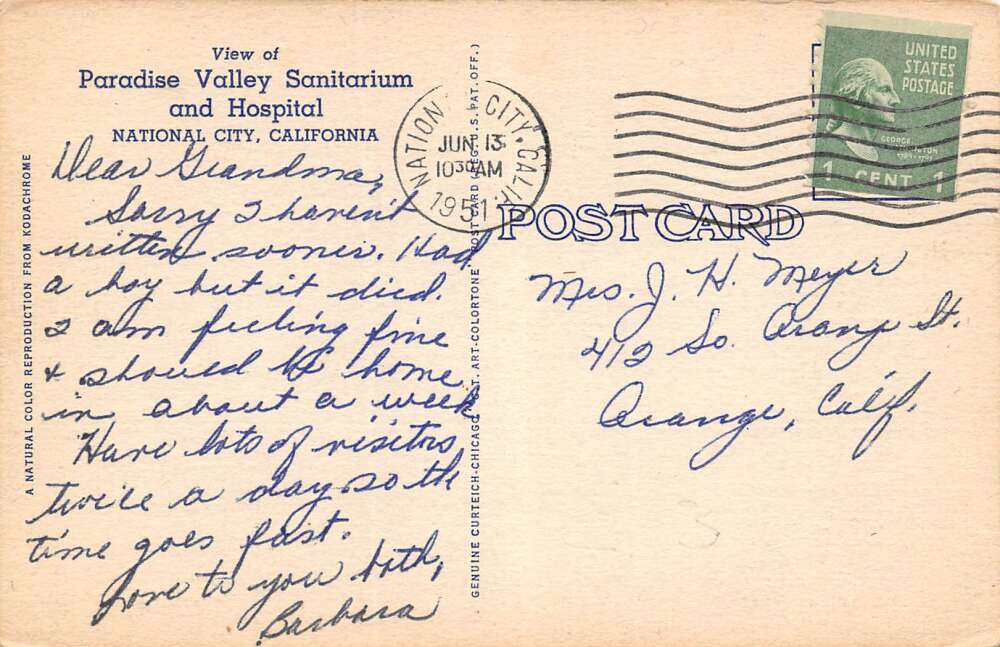 View of
Paradise Valley Sanitarium
and Hospital
NATIONAL CITY, CALIFORNIA
Dear Grandma,
Sorry I haven't
written sooner. Had
a boy but it died.
I am feeling fine
& should be home
in about a week
Have lots of visitors
twice a day so the
time goes fast.
Love to you both,
Barbara
A NATURAL COLOR REPRODUCTION FROM KODACHROME
GENUINE CURTEICH-CHICAGO "C.T. ART-COLORTONE" POST CARD (REG. U.S. PAT. OFF.)
NATIONAL CITY, CALIF.
JUN 13
10 30 AM
1951
UNITED
STATES
POSTAGE
GEORGE
WASHINGTON
1789-1797
1 CENT 1
POST CARD
Mrs. J. H. Meyer
412 So. Orange St.
Orange, Calif.